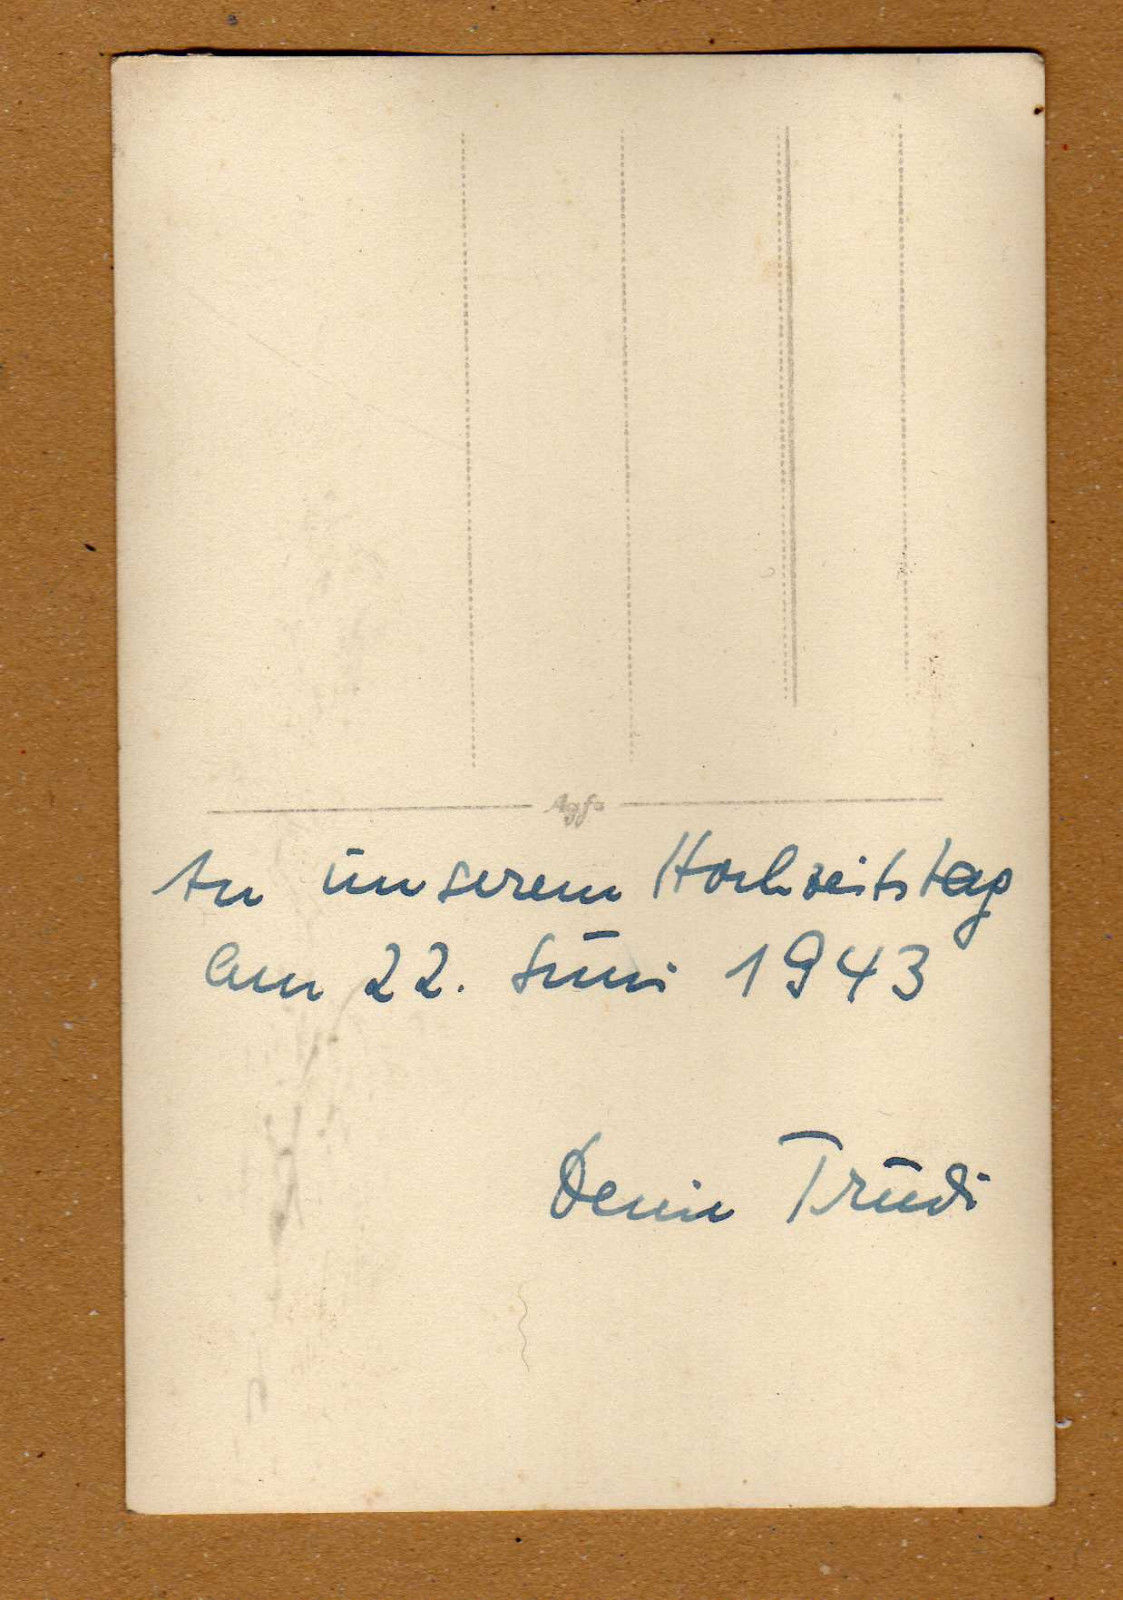 Agfa
An unserem Hochzeitstag
am 22. Juni 1943
Deine Trudi